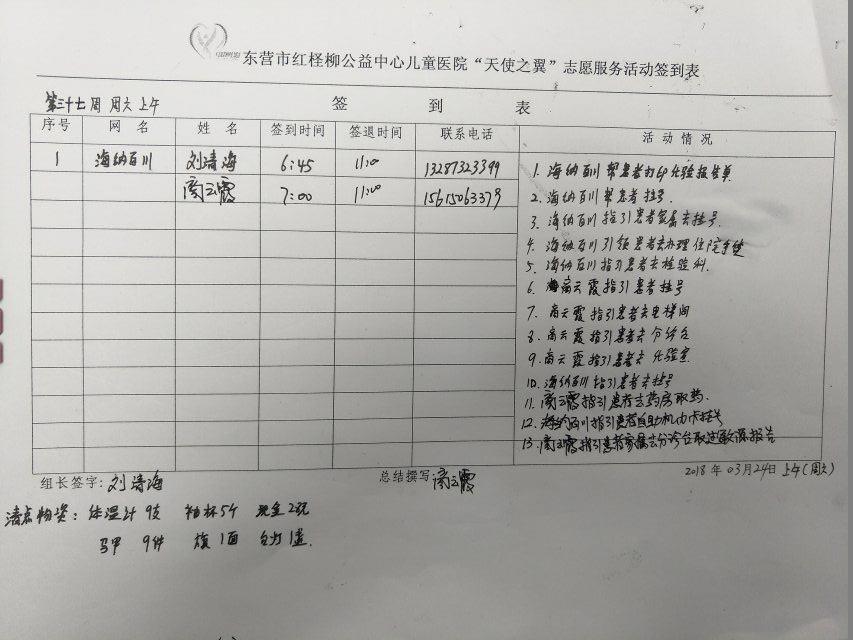 东营市红柽柳公益中心儿童医院“天使之翼”志愿服务活动签到表
第三十七周 周六上午
签 到 表
序号 网 名 姓 名 签到时间 签退时间 联系电话 活 动 情 况
1 海纳百川 刘清海 6:45 11:00 13287323399
商云霞 7:00 11:00 15615063379
1. 海纳百川帮患者打印化验报告单
2. 海纳百川帮患者挂号.
3. 海纳百川指引患者家属去挂号.
4. 海纳百川引领患者去办理住院手续
5. 海纳百川指引患者去检验科.
6. 商云霞指引患者挂号
7. 商云霞指引患者去电梯间
8. 商云霞指引患者去分诊台
9. 商云霞指引患者去化验室
10. 海纳百川指引患者去挂号
11. 商云霞指引患者去药房取药.
12. 海纳百川指引患者自助机办卡挂号
13. 商云霞指引患者家属去分诊台取过敏源报告
组长签字: 刘清海 总结撰写 商云霞 2018年03月24日上午(周六)
清点物资: 体温计9支 纸杯5个 现金2元
马甲 9件 旗1面 台灯1盏.